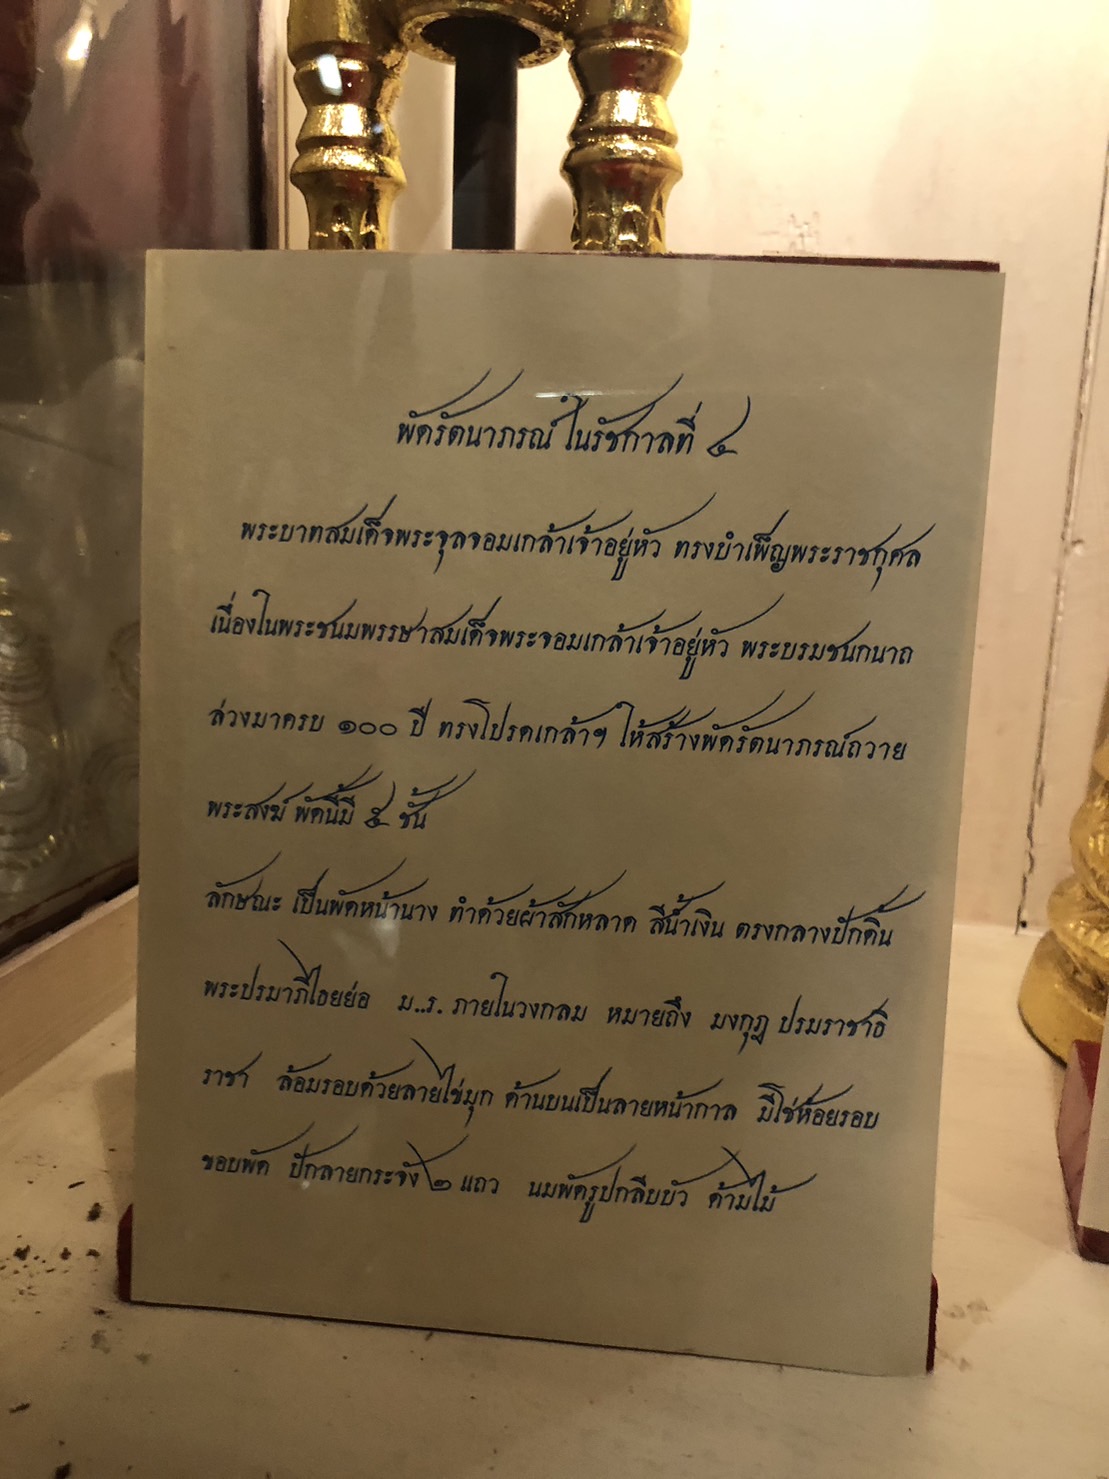 พัดรัตนาภรณ์ ในรัชกาลที่ ๔
พระบาทสมเด็จพระจุลจอมเกล้าเจ้าอยู่หัว ทรงบำเพ็ญพระราชกุศล
เนื่องในพระชนมพรรษาสมเด็จพระจอมเกล้าเจ้าอยู่หัว พระบรมชนกนาถ
ล่วงมาครบ ๑๐๐ ปี ทรงโปรดเกล้าฯ ให้สร้างพัดรัตนาภรณ์ถวาย
พระสงฆ์ พัดนี้มี ๕ ชั้น
ลักษณะ เป็นพัดหน้านาง ทำด้วยผ้าสักหลาด สีน้ำเงิน ตรงกลางปักดิ้น
พระปรมาภิไธยย่อ ม..ร. ภายในวงกลม หมายถึง มงกุฎ ปรมราชาธิ
ราชา ล้อมรอบด้วยลายไข่มุก ด้านบนเป็นลายหน้ากาล มีโซ่ห้อยรอบ
ขอบพัด ปักลายกระจัง ๒ แถว นมพัดรูปกลีบบัว ด้ามไม้